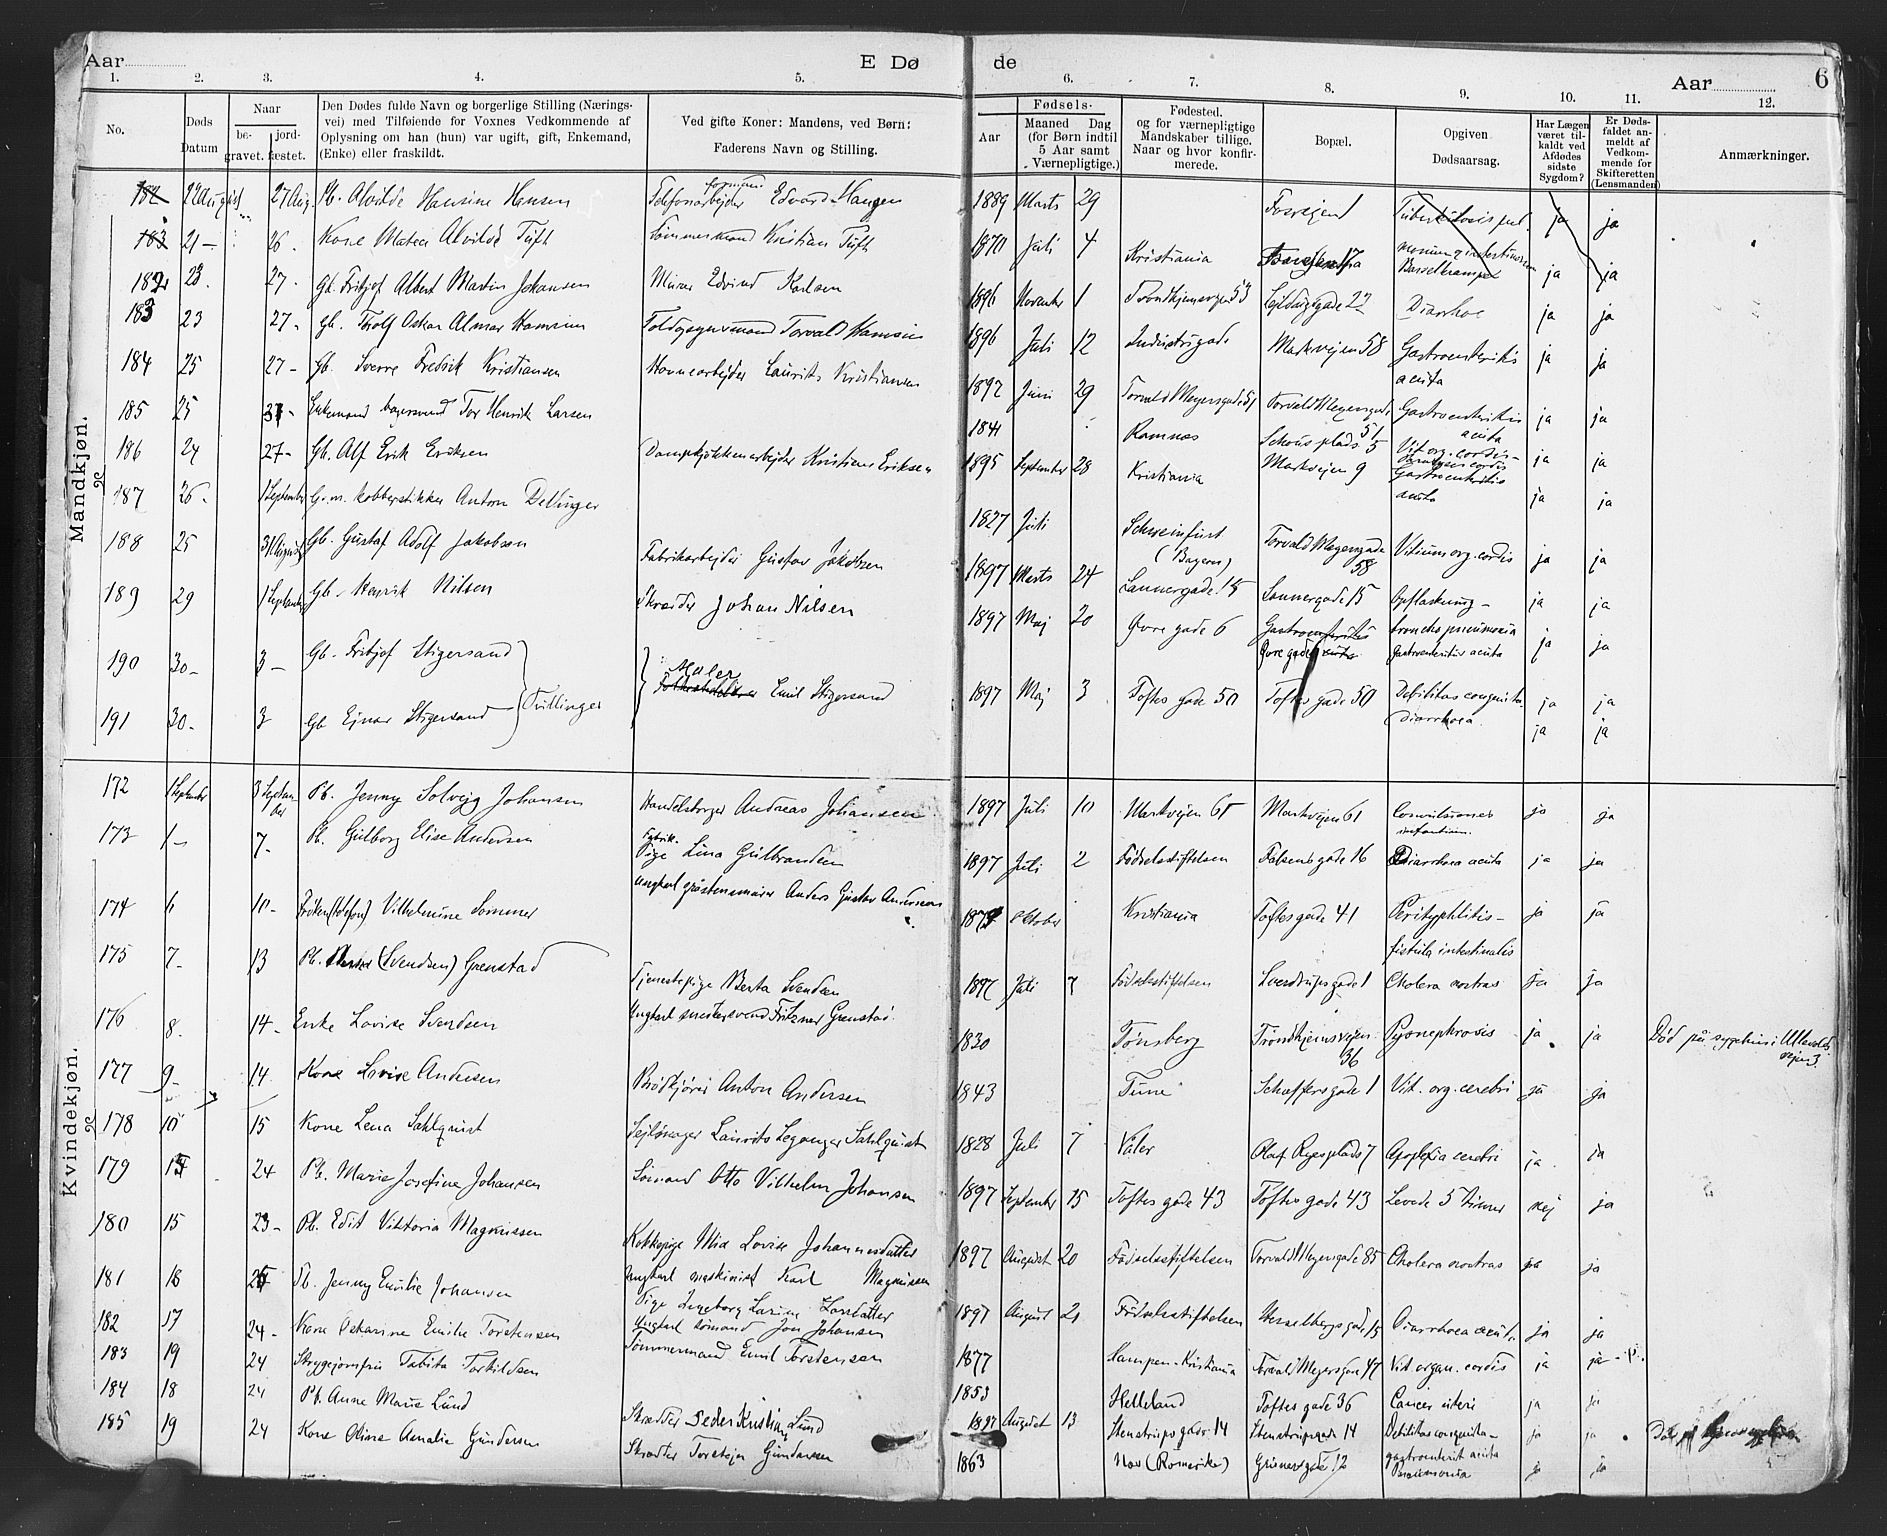 Aar
E Dø
de
Aar
6
1.
2.
3.
4.
5.
6.
7.
8.
9.
10.
11.
12.
No.
Døds Datum
Naar
be- gravet.
jord- fæstet.
Den Dødes fulde Navn og borgerlige Stilling (Nærings-
vei) med Tilføiende for Voxnes Vedkommende af
Oplysning om han (hun) var ugift, gift, Enkemand,
(Enke) eller fraskildt.
Ved gifte Koner: Mandens, ved Børn:
Faderens Navn og Stilling.
Fødsels-
Aar
Maaned Dag
(for Børn indtil
5 Aar samt
Værnepligtige.)
Fødested.
og for værnepligtige
Mandskaber tillige.
Naar og hvor konfir-
merede.
Bopæl.
Opgiven
Dødsaarsag.
Har Lægen
været til-
kaldt ved
Afdødes
sidste
Sygdom?
Er Døds-
faldet an-
meldt af
Vedkom-
mende for
Skifteretten
(Lensmanden)
Anmærkninger.
Mandkjøn.
182 22 August 27 Aug. Pb. Alvilde Hansine Hansen Telefonarbejder formand Edvard Haugen 1889 Marts 29 ja ja
183 21 - 26. Kone Matea Alvilde Tuft Tømmermand Kristian Tuft 1870 Juli 4 Kristiania ja ja
182 23. 27. Gb. Fritjof Albert Martin Johansen Murer Edvind Karlsen 1896 November 1 Trondhjemsvejen 53 22 Diarrhoe ja ja
183 23 27 - Gb. Tholf Oskar Almar Hamsun Toldopsynsmand Torvald Hamsun 1896 Juli 12 Industrigade Markvejen 58 Gastroenteritis acuta ja ja
184 25 27 - Gb. Sverre Fredrik Kristiansen Havnearbejder Laurits Kristiansen 1897 Juni 29 Torvald Meyersgade 51 Torvald Meyersgade 51 Gastroenteritis acuta ja ja
185 25 31 - Enkemand Tor Henrik Larsen 1841 Ramnes Schous plads 5 Vit. org. cordis - ja ja
186 24 27 - Gb. Alf Erik Eriksen Dampkjøkkenarbejder Kristian Eriksen 1895 September 28 Kristiania Markvejen 9 Gastroenteritis acuta ja ja
187 26 - 1 September G.m. Kobberstikker Anton Dellinger 1827 Juli Schweinfurt (Bayern) Torvald Meyersgade 58 Vitium org. cordis ja ja
188 25 31 August Gb. Gustaf Adolf Jakobsen Fabrikarbejder Gustav Jakobsen 1897 Marts 24 Sannergade 15 Sannergade 15 Opflaskning - bronchopneumonia ja ja
189 29 1 September Gb. Henrik Nilsen Skræder Johan Nilsen 1897 Maj 20 Øvre gade 6 Øvre gade Gastroenteritis acuta ja ja
190 30 - 3 - Gb. Fritjof Stigersand Tvillinger Maler Emil Stigersand 1897 Maj 3 Toftes gade 50 Toftes gade 50 Debilitas congenita ja ja
191 30 - 3 Gb Ejnar Stigersand Diarrhoea. ja ja
Kvindekjøn.
172 1 September 3 September Pb. Jenny Solvejg Johansen Handelsborger Andreas Johansen 1897 Juli 10 Markvejen 61 Markvejen 61 Convulsiones infantium. ja ja
173 1 - 7 - Pb. Gulborg Elise Andersen Fabrik. Pige Lina Gulbrandsen Ungkarl Anders Gustav Andersen 1897 Juli 2 Fødselsstiftelsen Falsensgade 16 Diarrhoea acuta ja ja
174 6 10 - Frøken (telefon) Vilhelmine Sommer Oktober Kristiania Toftesgade 41 Perityphlitis - fistula intestinalis ja ja
175 7 - 13 Pb. (Svendsen) Grenstad Tjenestepige Berta Svendsen Ungkarl Fritzner Grenstad 1897 Juli 7 Fødselsstiftelsen Sverdrupsgade 1 Cholera nostras ja ja
176 8. 14 - Enke Lovise Svendsen 1830 Tønsberg Trondhjemsvejen 36 Pyonephrosis ja ja Død på sygehus i Ullevolds vejen 3.
177 9 - 14. Kone Lovise Andersen Brødkjører Anton Andersen 1843 Tune Schæffersgade 1 Vit. org. cerebri ja ja
178 10 15 Kone Lena Sahlquist Sejlmager Laurits Leganger Sahlquist 1828 Juli 7 Våler Olaf Ryesplads 7 Apoplexia cerebri ja ja
179 15 24 Pb. Marie Josefine Johansen Sømand Otto Vilhelm Johansen 1897 September 15 Toftes gade 43 Toftes gade 43 Levede 5 timer nej ja
180 15 23 - Pb. Edit Viktoria Magnussen Kokkepige Mia Lovise Johannesdatter Ungkarl maskinist Karl Magnussen 1897 August 20 Fødselsstiftelsen Torvald Meyersgade 85 Cholera nostras ja ja
181 16 Pb. Jenny Emilie Johansen Pige Ingeborg Larsdatter Ungkarl sømand Jon Johansen 1897 August Fødselsstiftelsen Hesselbergsgade 15 Diarrhoea acut. ja ja
182 17 24 - Kone Oskarine Emilie Torstensen Tømmermand Emil Torstensen 1877 Kampen - Kristiania Torvald Meyersgade 47 Vit organ. cordis ja ja
183 19 24 Strygejomfru Tabita Torkildsen 1853 Helleland Toftes gade 36 Cancer uteri ja ja
184 18 24 Pb. Anne Marie Lund Skrædder Peder Kristian Lund 1897 August 13 Stenstrupsgade 14 Stenstrupsgade 14 Debilitas congenita - gastroenterit acuta ja ja
185 19 24 Kone Oline Amalie Gundersen Skrædder Torstejn Gundersen 1863 Nes (Romerike) Grünersgade 12 Pneumonia ja ja